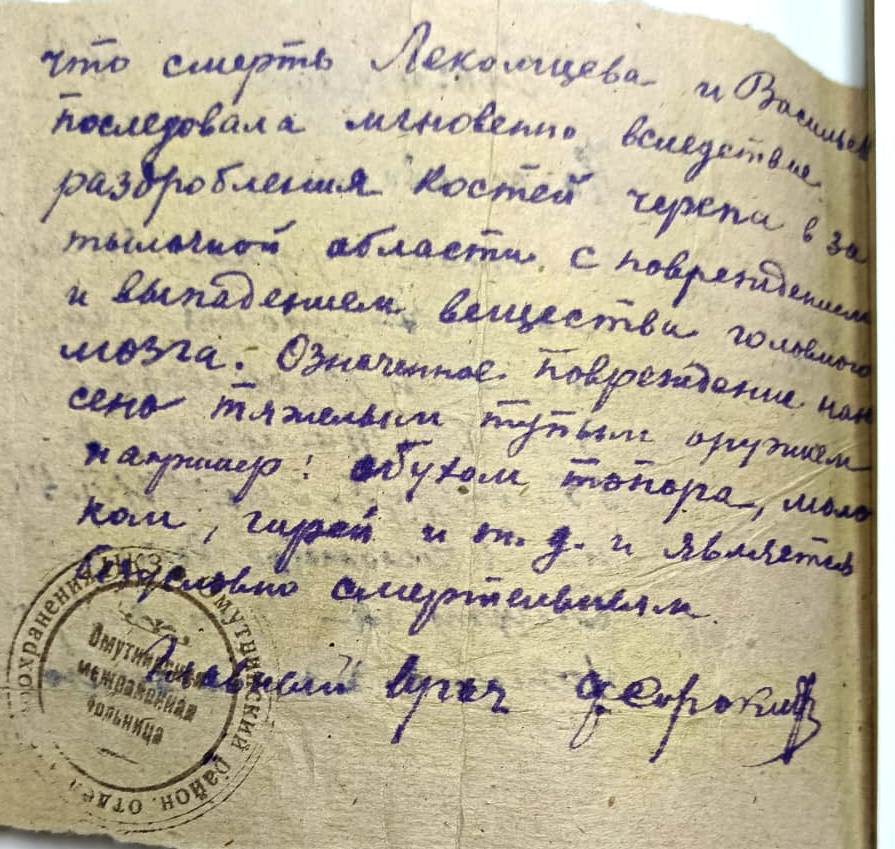 что смерть Лекомцева и Васильев
последовала мгновенно вследствие
раздробления костей черепа в за
тылочной области с повреждением
и выпадением вещества головного
мозга. Означенное повреждение нан
сено тяжелым тупым оружием
например: обухом топора, моло
ком, гирей и т. д. и является
безусловно смертельным.
Главный врач
Омутнинская
межрайонная
больница
НКЗ Омутнинский район. отдел